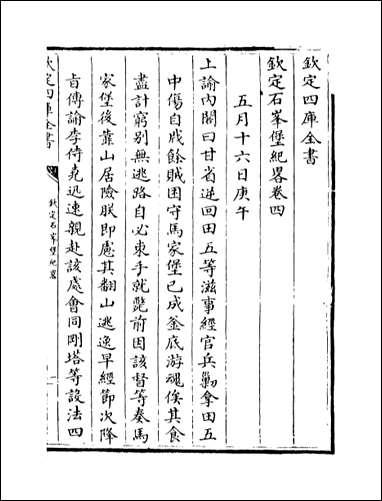 欽定四庫全書
欽定石峯堡紀畧卷四
五月十六日庚午
上諭內閣曰甘省逆回田五等滋事經官兵勦拿田五
中傷自戕餘賊困守馬家堡已成釜底游魂俟其食
盡計窮别無逃路自必束手就斃前因該督等奏馬
家堡後靠山居險朕即慮其翻山逃逸早經節次降
旨傳諭李侍堯迅速親赴該處會同剛塔等設法四
欽定四庫全書
欽定石峯堡紀畧
一